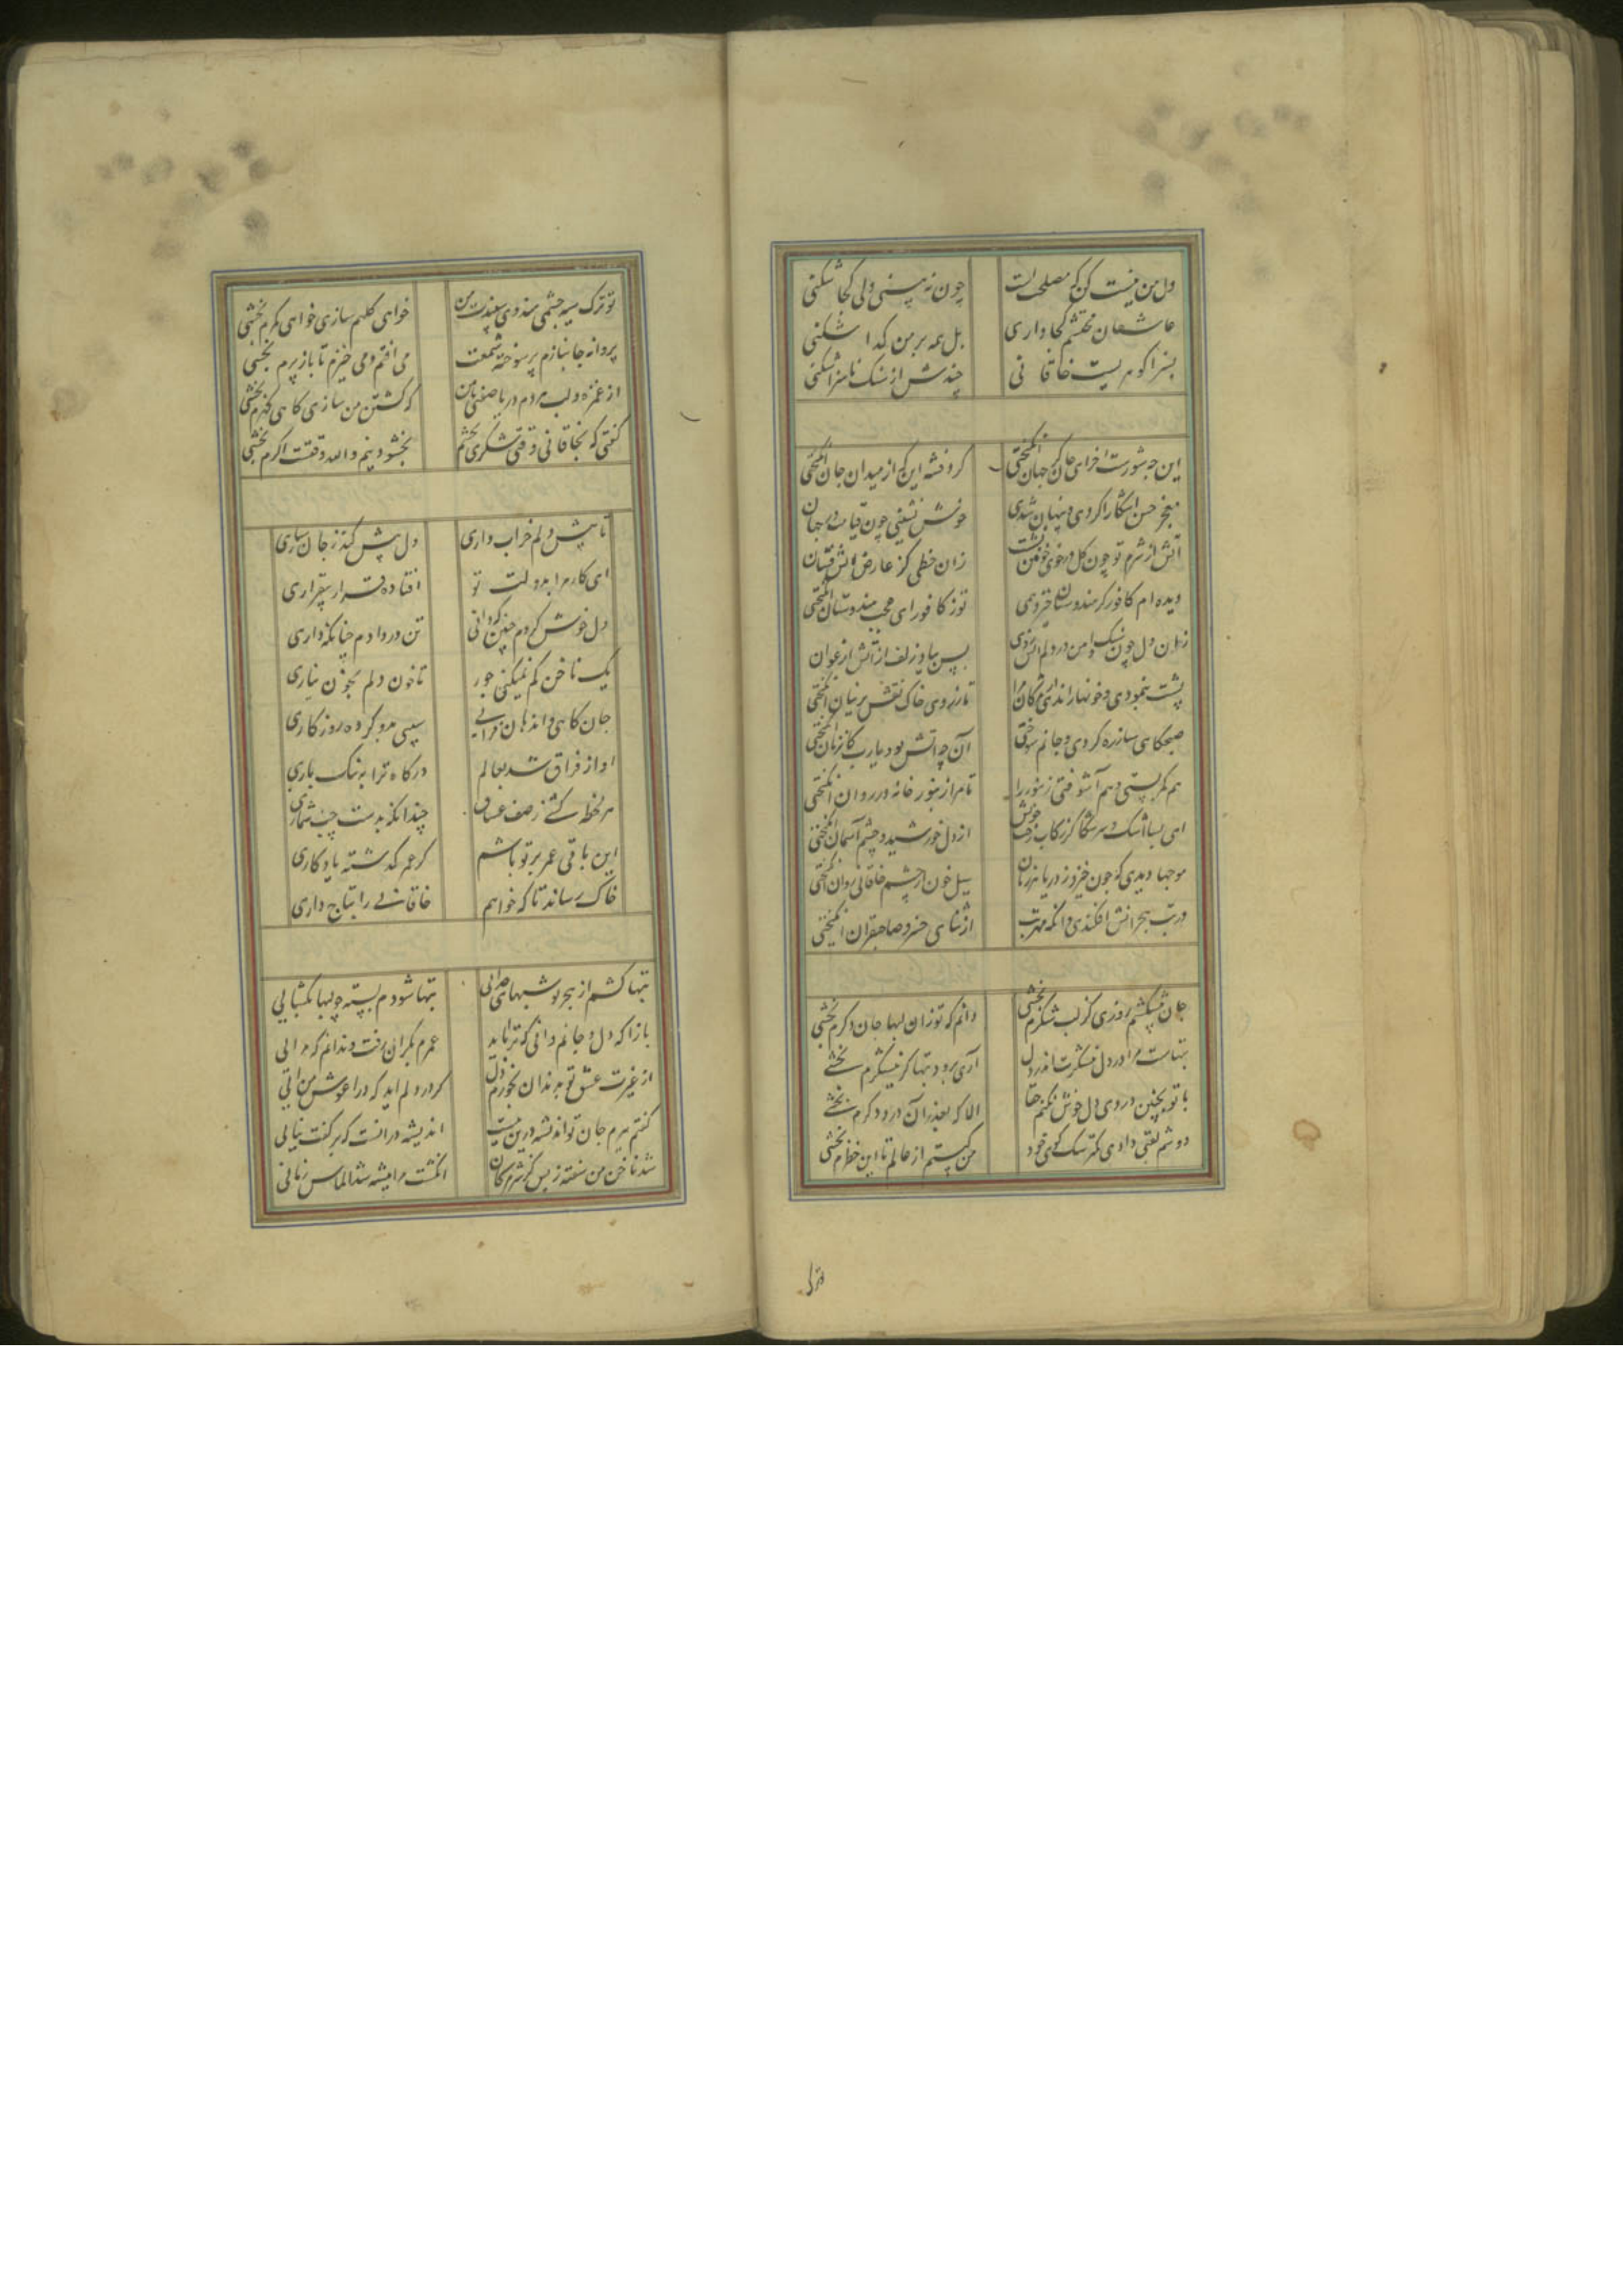 دل من نیست کن که مصلحتست
چون نه بینی دلی کجا شکنی
عاشقان محتشم کجا داری
بل همه بر من گدا شکنی
بسزا گوهریست خاقانی
چندش از سنک ناسزا شکنی
این چه شورست اخرای جان کز جهان انگیختی
گرد فتنه این که از میدان جان انگیختی
معجز حسن اشکارا کردی و پنهان شدی
خوش نشینی چون قیامت در جهان
آتش از شرم تو چون گل در خوی خونین نشست
زان خطی کز عارض اتش فشان
دیده ام کافور کز هندوستان خیزد همی
تو ز کافور ای عجب هندوستان انگیختی
زاهن دل چون سنک وامن در دلم اتش زدی
پس سیاوز زلف از آتش ارغوان
پشت بنمودی و خونها راندی از مژکان مرا
تا ز روی خاک نقش پرنیان انگیختی
صبحکاهی ساز ره کردی و جانم سوختی
آن چه اتش بود یارب کانزمان انگیختی
هم کمر بستی و هم آشوفتی زنبور را
تا مرا زنبور خانه در روان انگیختی
ای بسا اشک و سرشکا کز رکاب رخش خویش
از دل خورشید و چشم آسمان انگیختی
موجها دیدی که چون خیزد ز دریا هر زمان
سیل خون از چشم خاقانی روان انگیختی
در تب هجرانش افکندی و انگه مهر تب
از ثنای خسرو صاحبقران انگیختی
جان میکشم روزی کز لب شکرم بخشی
دانم که تو زان لبها جان دکرم بخشی
تبهاست مرا در دل نیشکرت اندر دل
آری برود تبها کز نیشکرم بخشی
با تو بچنین دردی دل خوش نکنم حقا
الا که بعذر آن درد دکرم بخشی
دوشم لقبی دادی کمتر سک کوی خود
من کیستم از عالم تا این خطرم بخشی
تو ترک
تو ترک سیه چشمی هندوی سپیدت من
خواهی کلهم سازی خواهی کمرم بخشی
پروانه جانبازم پر سوخته شمعت
می افتم و می خیزم تا باز پرم بخشی
از غمزه و لب هر دم دریا صفتی با من
که کشتن من سازی کاهی کهرم بخشی
گفتی که بخاقانی وقتی شکری بخشم
بخشودنیم والله وقتست اکرم بخشی
تا بیش دلم خراب داری
دل بیش کند ز جان سپاری
ای کار مرا بدولت تو
افتاده قرار بیقراری
دل خوش کردم چنین که دانی
تن در دادم چنانکه داری
یک ناخن کم نمیکنی جور
تا خون دلم بجون نیاری
جان کاهی و انده ان فزایی
سپی مرد کرده روزکاری
اواز فراق شد بعالم
درکاه ترا به تنک باری
هر لحظه کشی ز صف عشاق
چندانکه بدست چپ شماری
این باقی عمر بر تو باشم
کز عمر گذشته یادکاری
خاک رساند تا که خواهم
خاقانی را بتاج داری
تبها کشم از هجر تو شبهای جدائی
تبها شودم بسته چو لبها بگشایی
بازآ که دل و جانم دانی که ترا باید
عمرم بکران رفت و ندانم که مرایی
از غیرت عشق تو به دندان بخورم دل
کر در دلم اید که در اغوش من ائی
کفتم ببرم جان تو اندیشه درین نیست
اندیشه در انست که بر کفت نپایی
شد ناخن من سفته ز بس کز سر مژکان
انکشت مرا میشه شد الماس زدائی